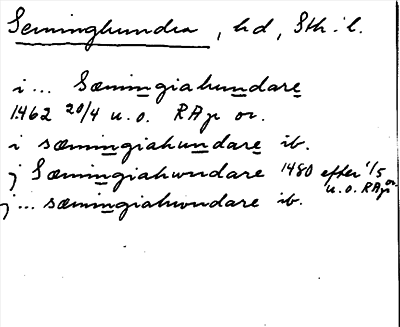 Seminghundra, hd, Sth:l.
i... Sæmingiahundare
1462 20/4 u.o. RAp or.
i sæmingiahundare ib.
j Sæmingiahwndare 1480 efter 1/5 u.o. RAp or.
j... sæmingiahwndare ib.